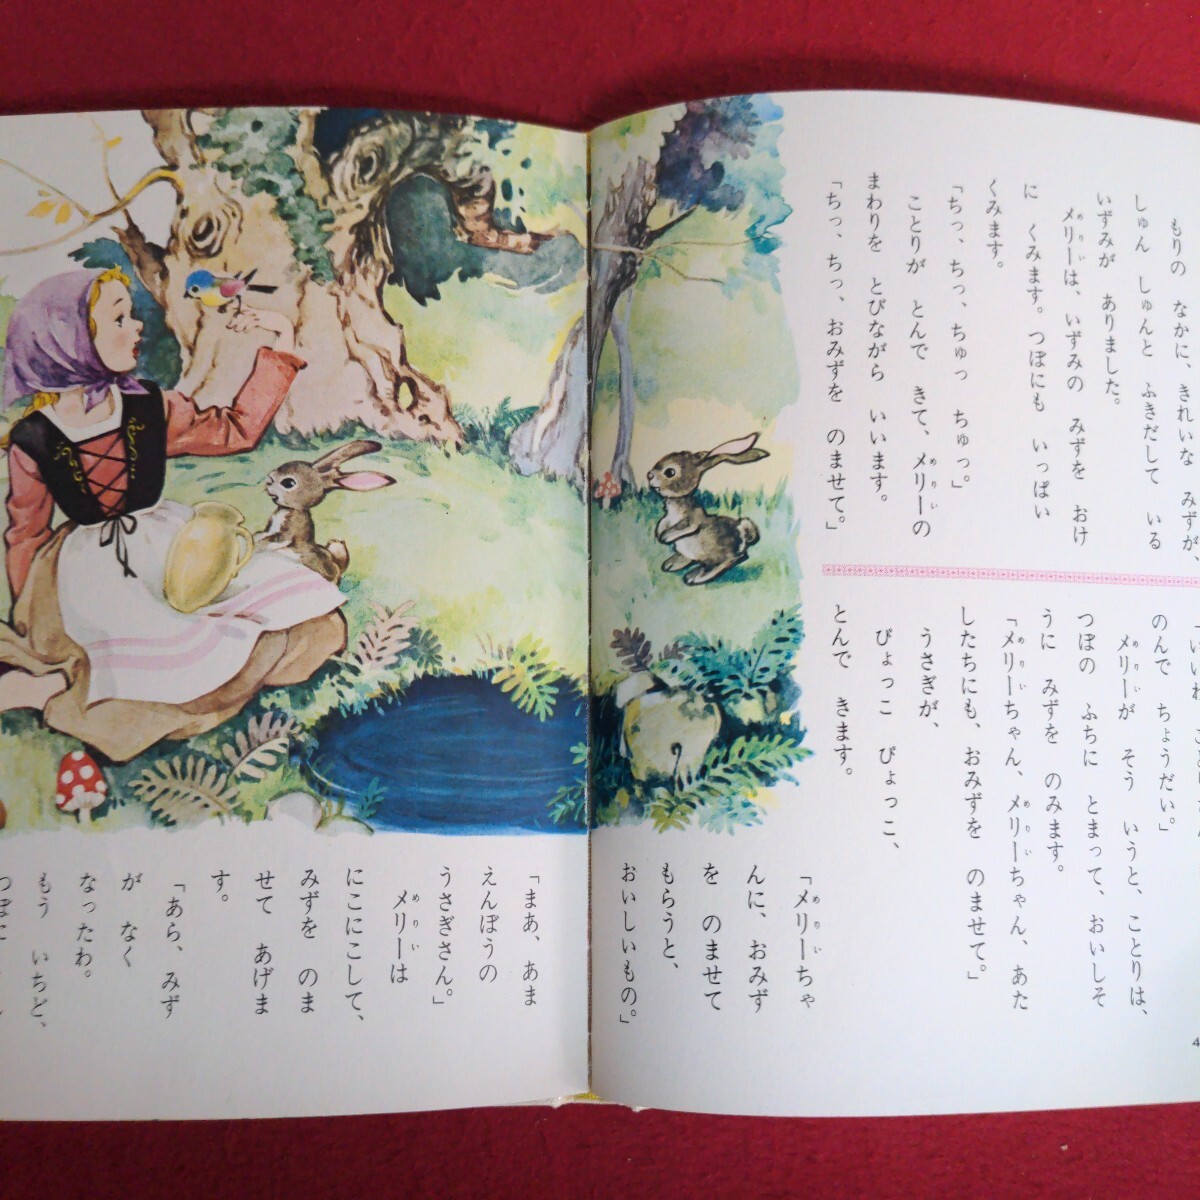 もりの なかに、きれいな みずが、
しゅん しゅんと ふきだして いる
いずみが ありました。
メリーは、いずみの みずを おけ
に くみます。つぼにも いっぱい
くみます。
「ちっ、ちっ、ちゅっ ちゅっ。」
ことりが とんで きて、メリーの
まわりを とびながら いいます。
「ちっ、ちっ、おみずを のませて。」
のんで ちょうだい。」
メリーが そう いうと、ことりは、
つぼの ふちに とまって、おいしそ
うに みずを のみます。
「メリーちゃん、メリーちゃん、あた
したちにも、おみずを のませて。」
うさぎが、
ぴょっこ ぴょっこ、
とんで きます。
「メリーちゃ
んに、おみず
を のませて
もらうと、
おいしいもの。」
「まあ、あま
えんぼうの
うさぎさん。」
メリーは
にこにこして、
みずを のま
せて あげま
す。
「あら、みず
が なく
なったわ。
もう いちど、
つぼに
4